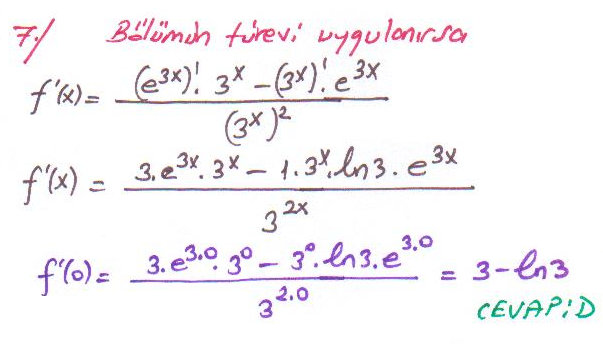 7./ Bölümün türevi uygulanırsa
f'(x) = ((e^3x)'. 3^x - (3^x)'. e^3x) / (3^x)^2
f'(x) = (3.e^3x. 3^x - 1.3^x. ln3. e^3x) / 3^2x
f'(0) = (3.e^3.0. 3^0 - 3^0. ln3. e^3.0) / 3^2.0 = 3 - ln3
CEVAP: D